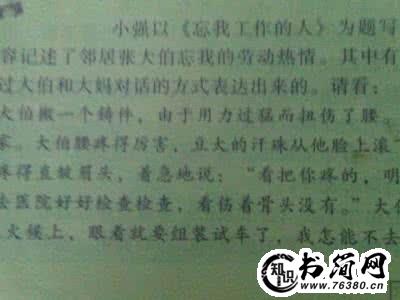 小强以《忘我工作的人》为题写
容记述了邻居张大伯忘我的劳动热情。其中有
过大伯和大妈对话的方式表达出来的。请看：
大伯搬一个铸件，由于用力过猛而扭伤了腰。
家。大伯腰疼得厉害，豆大的汗珠从他脸上滚
疼得直皱眉头，着急地说：“看把你疼的，明
去医院好好检查检查，看伤着骨头没有。”大伯
火候上，眼看就要组装试车了，我怎能不去
知识
书简网
www.76380.cn